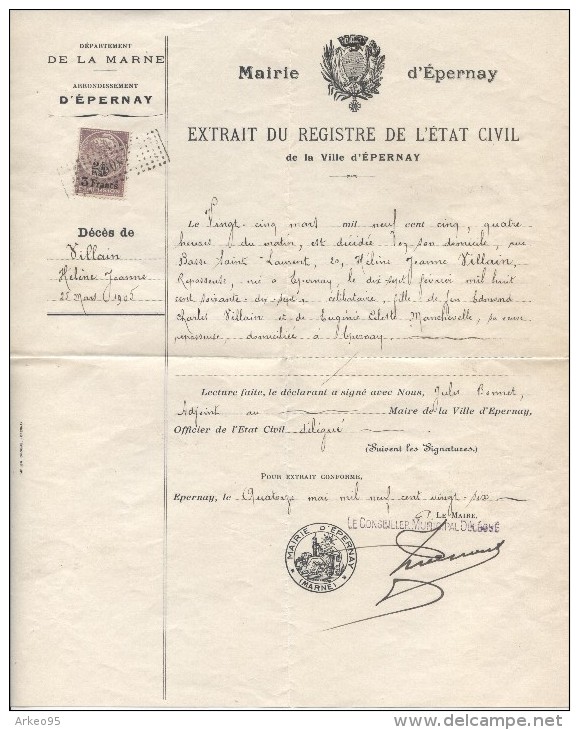 DÉPARTEMENT
DE LA MARNE
ARRONDISSEMENT
D'ÉPERNAY
5 Francs
Décès de
Villain
Hélène Jeanne
25 Mars 1905
Mairie d'Épernay
EXTRAIT DU REGISTRE DE L'ÉTAT CIVIL
de la Ville d'ÉPERNAY
Le Vingt-cinq mars mil neuf cent cinq, quatre
heures du matin, est décédée en son domicile, rue
Basse Saint Laurent, 20, Hélène Jeanne Villain,
Repasseuse, née à Epernay, le dix sept février mil huit
cent soixante-dix-sept, célibataire, fille de feu Edmond
Charles Villain et de Eugénie Céleste Manchevelle, sa veuve
domiciliée à Epernay
Lecture faite, le déclarant a signé avec Nous, Jules Bonnet,
Adjoint au Maire de la Ville d'Epernay,
Officier de l'Etat Civil délégué
(Suivent les Signatures.)
POUR EXTRAIT CONFORME,
Epernay, le Quatorze mai mil neuf cent vingt-six
LE MAIRE,
LE CONSEILLER MUNICIPAL DÉLÉGUÉ
MAIRIE D'ÉPERNAY
(MARNE)
Arkeo95
www.delcampe.net